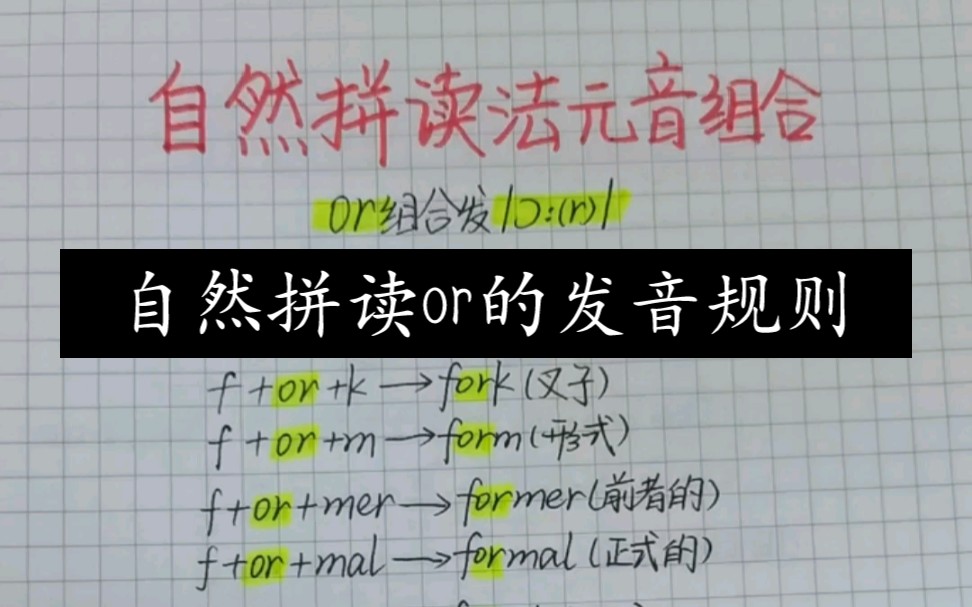 自然拼读法元音组合
or组合发/ɔ:(r)/
自然拼读or的发音规则
f+or+k→fork(叉子)
f+or+m→form(形式)
f+or+mer→former(前者的)
f+or+mal→formal(正式的)